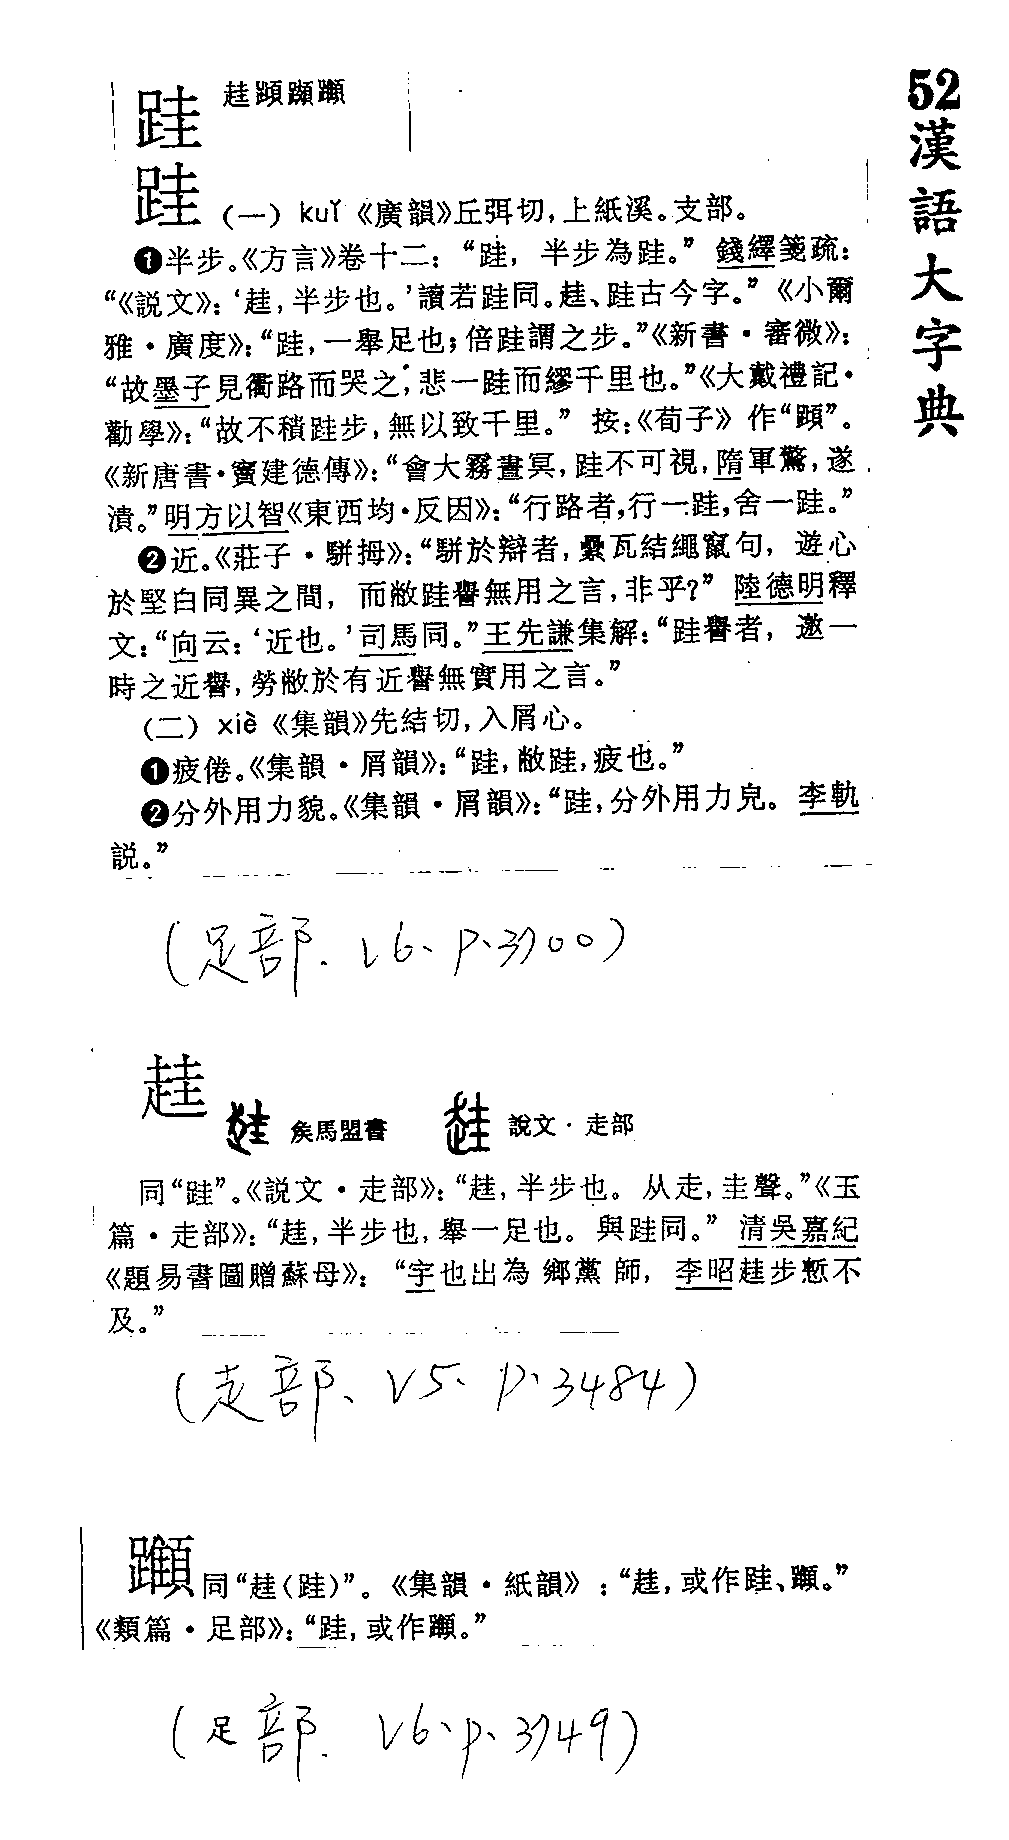 52漢語大字典
跬
跬
(一) kuǐ《廣韻》丘弭切,上紙溪。支部。
❶半步。《方言》卷十二:“跬,半步為跬。”錢繹箋疏:
“《説文》:‘趌,半步也。’讀若跬同。趌、跬古今字。”《小爾
雅・廣度》:“跬,一舉足也;倍跬謂之步。”《新書・審微》:
“故墨子見衢路而哭之,悲一跬而繆千里也。”《大戴禮記・
勸學》:“故不積跬步,無以致千里。” 按:《荀子》作“蹞”。
《新唐書・竇建德傳》:“會大霧晝冥,跬不可視,隋軍驚,遂
潰。”明方以智《東西均・反因》:“行路者,行一跬,舍一跬。”
❷近。《莊子・駢拇》:“駢於辯者,纍瓦結繩竄句,遊心
於堅白同異之間,而敝跬譽無用之言,非乎?”陸德明釋
文:“向云:‘近也。’司馬同。”王先謙集解:“跬譽者,邀一
時之近譽,勞敝於有近譽無實用之言。”
(二) xiè《集韻》先結切,入屑心。
❶疲倦。《集韻・屑韻》:“跬,敝跬,疲也。”
❷分外用力貌。《集韻・屑韻》:“跬,分外用力皃。李軌
説。”
(足部. v6、p、3700)
䞨
矦馬盟書 說文・走部
同“跬”。《説文・走部》:“䞨,半步也。从走,圭聲。”《玉
篇・走部》:“䞨,半步也,舉一足也。與跬同。”清吳嘉紀
《題易書圖贈蘇母》:“宇也出為鄉黨師,李昭䞨步慙不
及。”
(走部、v5、p.3484)
同“䞨(跬)”。《集韻・紙韻》:“䞨,或作跬、
《類篇・足部》:“跬,或作
(足部. v6、p、3749)